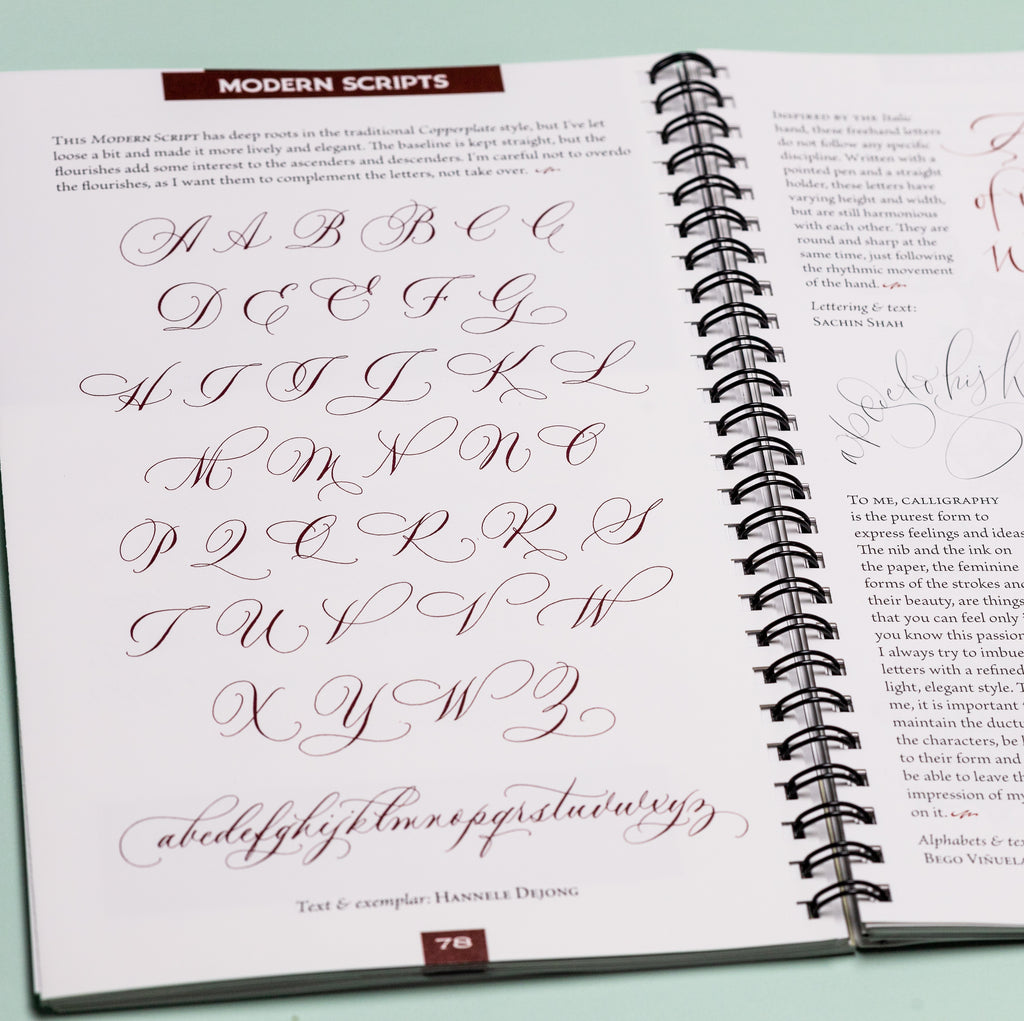 MODERN SCRIPTS
THIS MODERN SCRIPT has deep roots in the traditional Copperplate style, but I've let
loose a bit and made it more lively and elegant. The baseline is kept straight, but the
flourishes add some interest to the ascenders and descenders. I'm careful not to overdo
the flourishes, as I want them to complement the letters, not take over.
A A B B C C
D E E F G
H I I J K L
M M N N O
P Q Q R R S
T U V V W
X Y W Z
abcdefghijklmnopqrstuvwxyz
Text & exemplar: HANNELE DEJONG
78
INSPIRED BY THE Italic
hand, these freehand letters
do not follow any specific
discipline. Written with a
pointed pen and a straight
holder, these letters have
varying height and width,
but are still harmonious
with each other. They are
round and sharp at the
same time, just following
the rhythmic movement
of the hand.
of
Lettering & text:
SACHIN SHAH
TO ME, CALLIGRAPHY
is the purest form to
express feelings and ideas
The nib and the ink on
the paper, the feminine
forms of the strokes and
their beauty, are things
that you can feel only
you know this passion
I always try to imbue
letters with a refined
light, elegant style.
me, it is important
maintain the
the characters, be
to their form and
be able to leave
impression of
on it.
Alphabets &
BEGO